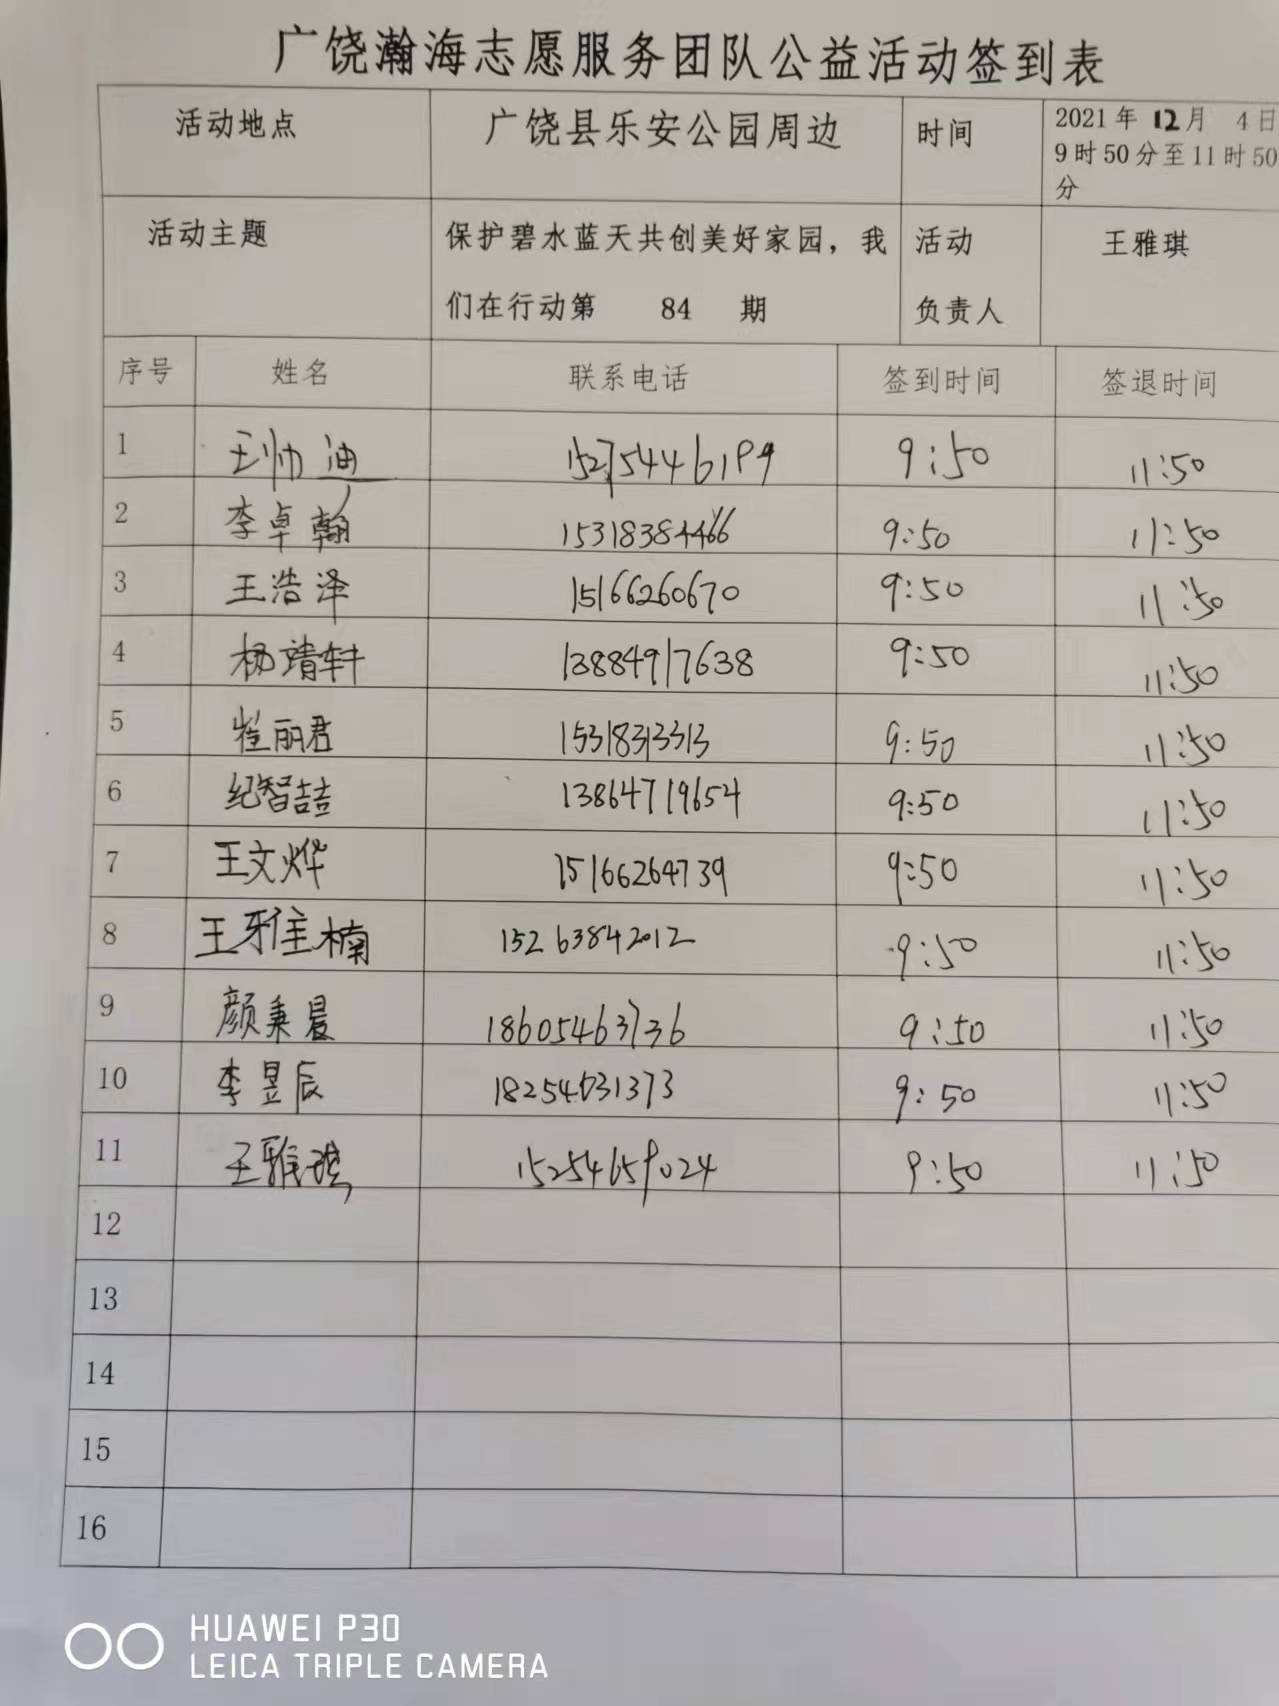 广饶瀚海志愿服务团队公益活动签到表
活动地点 广饶县乐安公园周边 时间 2021年 12月 4日
9时50分至11时50
分
活动主题 保护碧水蓝天共创美好家园，我 活动 王雅琪
们在行动第 84 期 负责人
序号 姓名 联系电话 签到时间 签退时间
1 王帅迪 15275446199 9:50 11:50
2 李卓翰 15318384466 9:50 11:50
3 王浩泽 15166260670 9:50 11:50
4 杨靖轩 13884917638 9:50 11:50
5 崔丽君 15318313313 9:50 11:50
6 纪智喆 13864719654 9:50 11:50
7 王文烨 15166264739 9:50 11:50
8 王雅楠 15263842012 9:50 11:50
9 颜秉晨 18605463736 9:50 11:50
10 李昱辰 18254631373 9:50 11:50
11 王雅琪 15254659024 9:50 11:50
12
13
14
15
16
HUAWEI P30
LEICA TRIPLE CAMERA